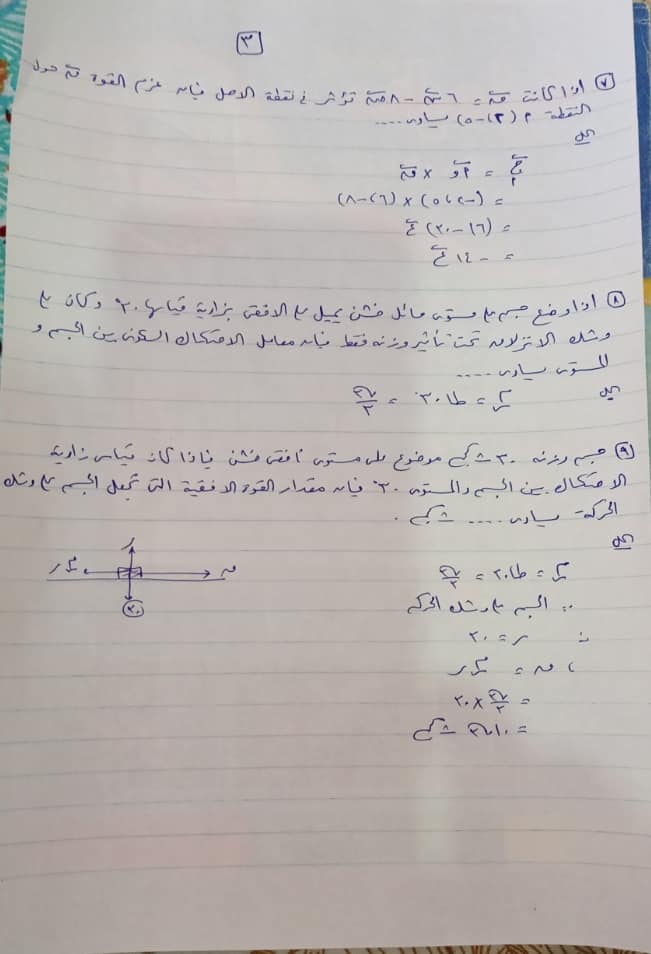 ٣
٧ اذا كانت ق = ٦ س - ٨ ص تؤثر في نقطة الاصل فإن عزم القوة ق حول
النقطة م (٢، -٥) يساوى ....
الحل
ج م = م و × ق
= (-٢، ٥) × (٦، -٨)
= (١٦ - ٣٠) ع
= -١٤ ع
٨ اذا وضع جسم على مستوى مائل خشن يميل على الافقى بزاوية قياسها ٣٠° وكان على
وشك الانزلاق تحت تأثير وزنه فقط فإن معامل الاحتكاك السكونى بين الجسم و
المستوى يساوى ....
الحل
م س = طا ٣٠° = √٣/٣
٩ جسم وزنه ٣٠ ث كجم موضوع على مستوى افقى خشن فإذا كان قياس زاوية
الاحتكاك بين الجسم والمستوى ٣٠° فإن مقدار القوة الافقية التى تجعل الجسم على وشك
الحركة يساوى .... ث كجم .
الحل
م س ر ق
٣٠
م س = طا ٣٠ = √٣/٣
∵ الجسم على وشك الحركة
∴ ر = ٣٠
، ق = م س ر
= √٣/٣ × ٣٠
= ١٠√٣ ث كجم